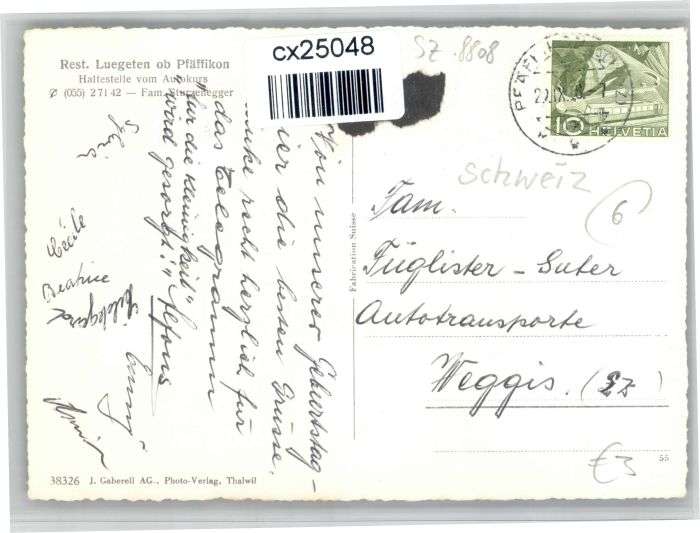 Rest. Luegeten ob Pfäffikon
Haltestelle vom Autokurs
(055) 2 71 42 — Fam. Sturzenegger
cx25048
SZ 8808
10 HELVETIA
Schweiz
6
Von unserer Geburtstag-
die besten Grüsse.
recht herzlich für
das Telegramm
"für die Kleinigkeit"
"wird gesorgt!" Alfons
Cécile
Beatrice
Fabrication Suisse
Fam.
Füglister - Suter
Autotransporte
Weggis.
€3
55
38326 J. Gaberell AG., Photo-Verlag, Thalwil